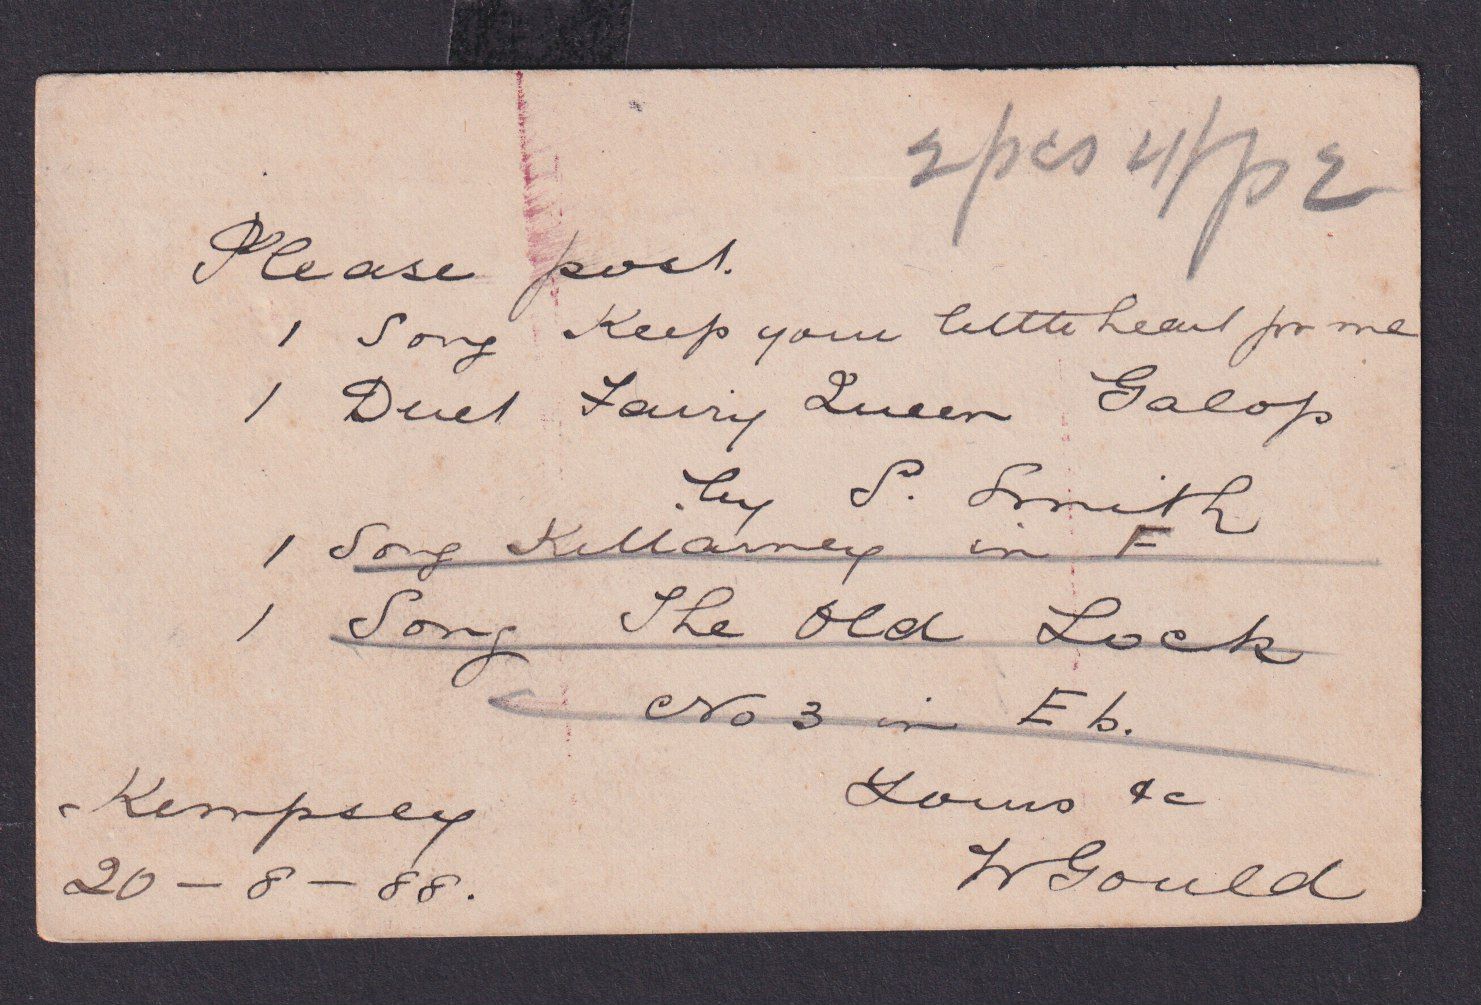 2 pcs 4/
Please post.
1 Song Keep your little heart for me
1 Duet Fairy Queen Galop
by S. Smith
1 Song Killarney in F
1 Song The Old Lock
No 3 in Eb.
Yours &c
W Gould
Kempsey
20 - 8 - 88.